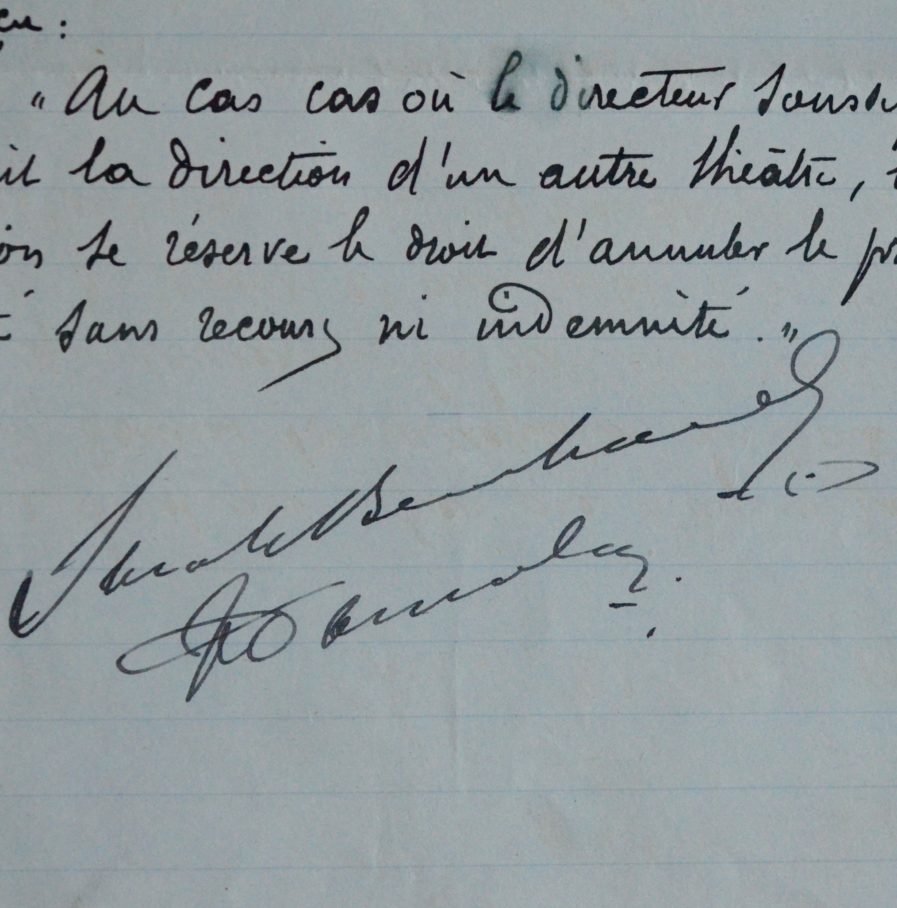 çu :
"Au cas cas où le directeur souss
it la direction d'un autre théâtre,
on se réserve le droit d'annuler le pr
é sans recours ni indemnité."
Sarah Bernhardt